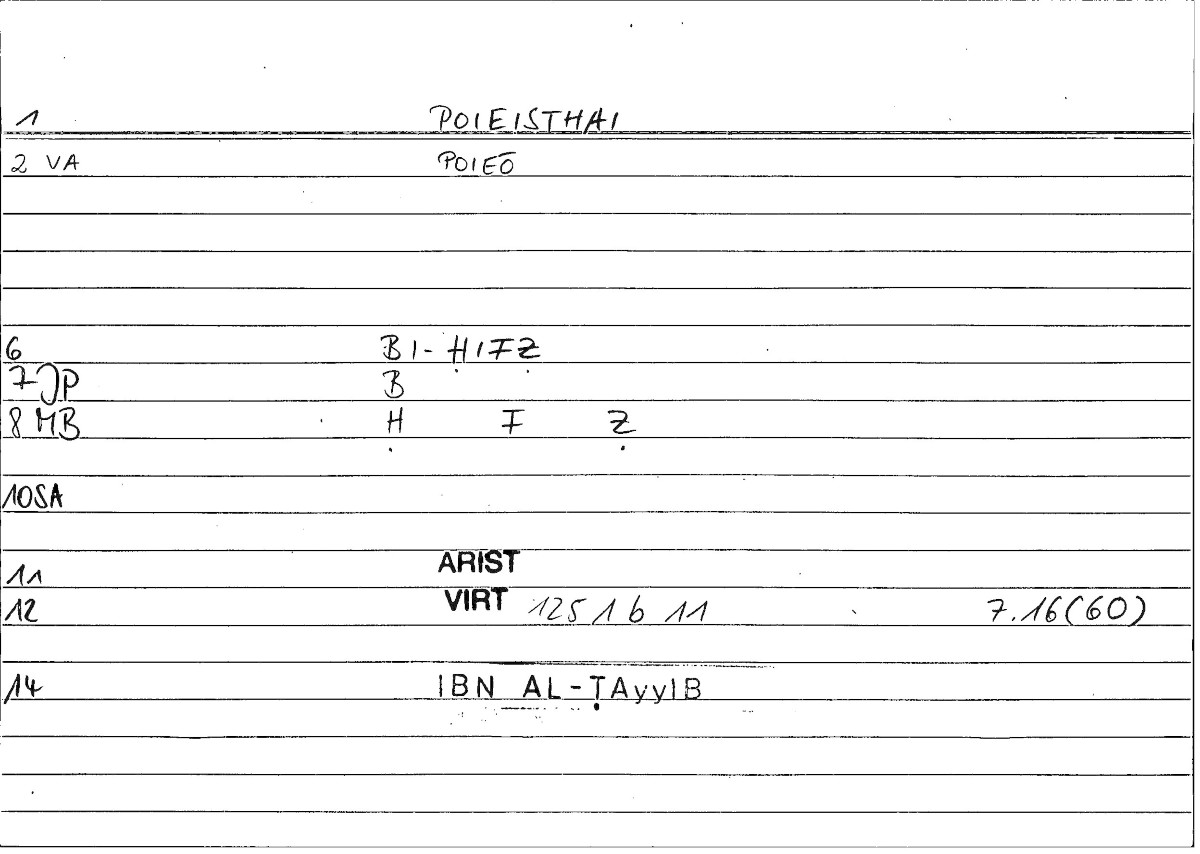 1 POIEISTHAI
2 VA POIEŌ
6 BI-ḤIFẒ
7 JP B
8 MB Ḥ F Ẓ
10SA
11 ARIST
12 VIRT 1251 b 11 7.16(60)
14 IBN AL-ṬAyyIB